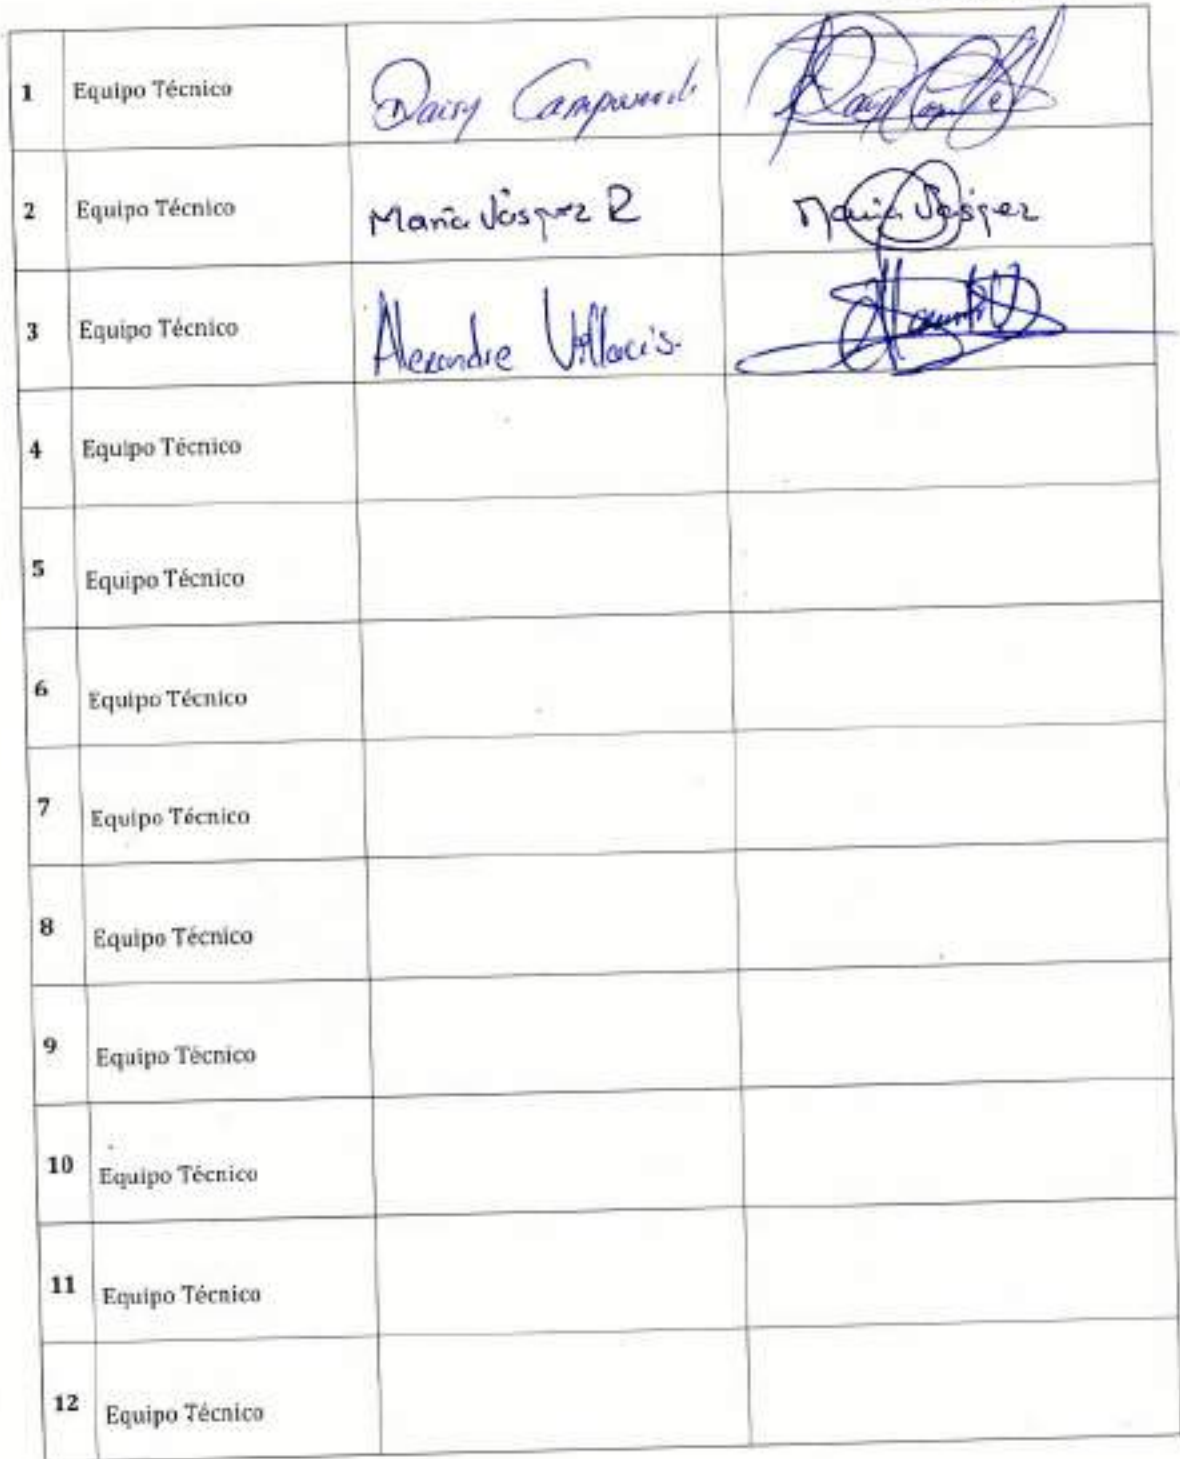 1 Equipo Técnico Daisy
2 Equipo Técnico María Vásquez R María Vásquez
3 Equipo Técnico Alexandre Villacis.
4 Equipo Técnico
5 Equipo Técnico
6 Equipo Técnico
7 Equipo Técnico
8 Equipo Técnico
9 Equipo Técnico
10 Equipo Técnico
11 Equipo Técnico
12 Equipo Técnico